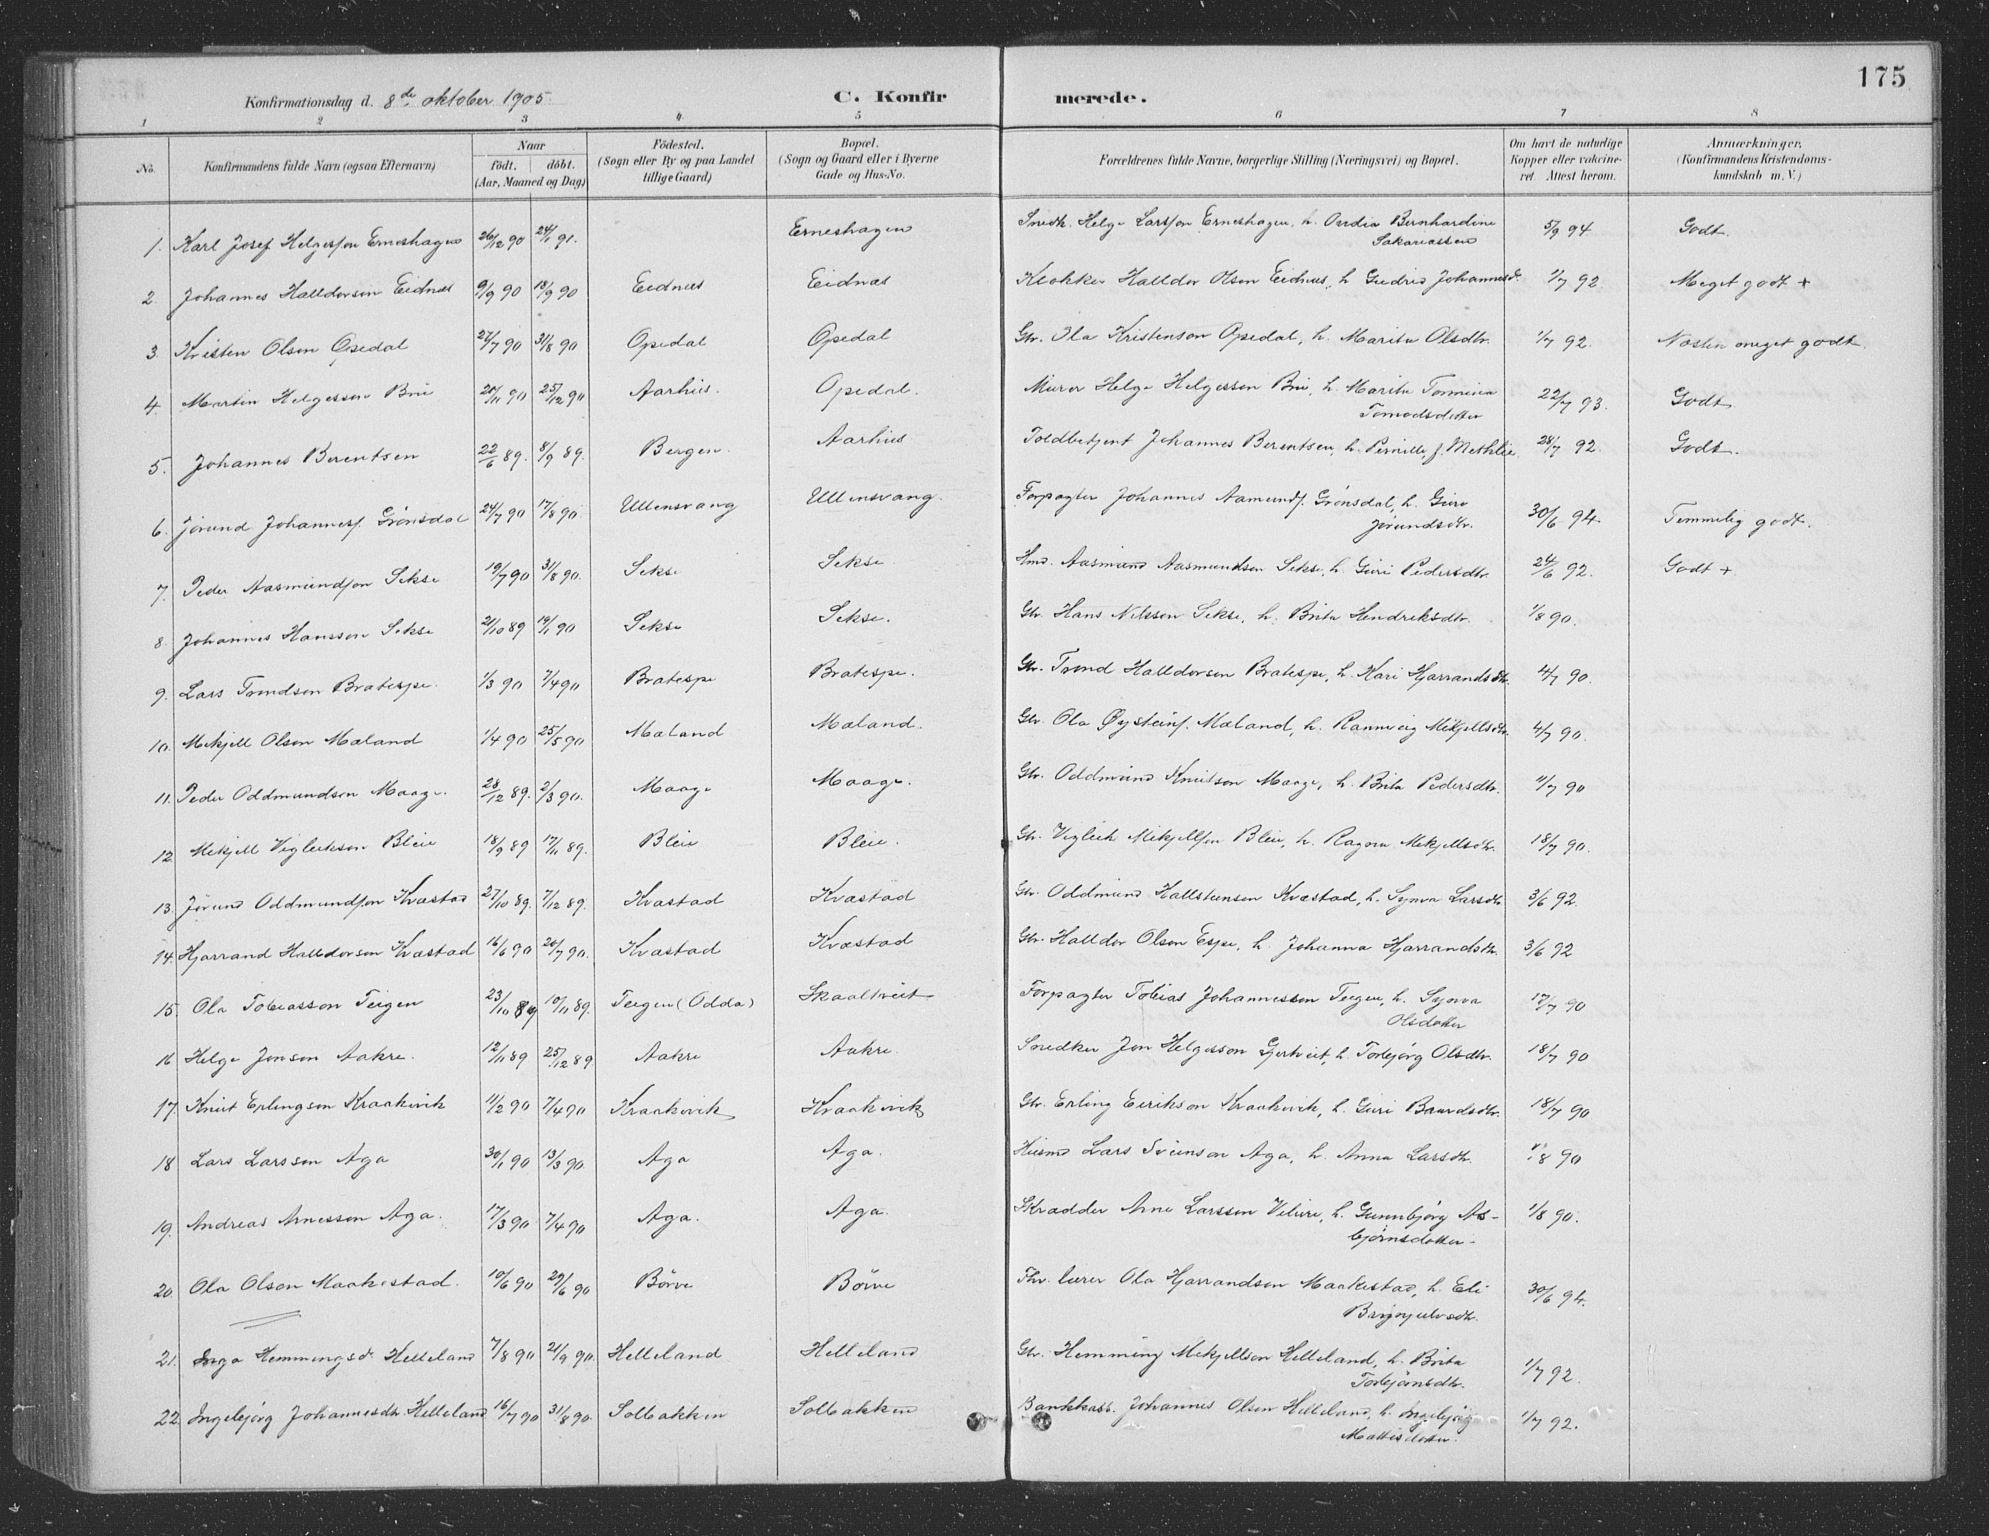 175
Konfirmationsdag d. 8de oktober 1905.
C. Konfir
merede.
1 2 3 4 5 6 7 8
No.
Konfirmandens fulde Navn (ogsaa Efternavn)
Naar
födt. döbt.
(Aar, Maaned og Dag)
Födested.
(Sogn eller By og paa Landet
tillige Gaard)
Bopæl.
(Sogn og Gaard eller i Byerne
Gade og Hus-No.
Forældrenes fulde Navne, borgerlige Stilling (Næringsvei) og Bopæl.
Om havt de naturlige
Kopper eller vakcine-
ret. Attest herom.
Anmærkninger,
(Konfirmandens Kristendoms-
kundskab m. V.)
1. Karl Josef Helgesson Erneshagen 26/12 90 24/1 91. Erneshagen Snedk. Helge Larsson Erneshagen, h. Bernhardine
Sakariassen 5/9 94 Godt.
2. Johannes Halldorson Eidnes 9/9 90 18/9 90 Eidnes Eidnes Klokker Halldor Olson Eidnes, h. Gudrid Johannesd. 1/7 92 Meget godt +
3. Kristen Olson Opedal 27/7 90 31/8 90 Opedal Opedal Gbr. Ola Kristenson Opedal, h. Marita Olsdtr. 1/7 92. Næsten meget godt.
4. Martin Helgesson Bu 25/12 90 Aarhus. Opedal. Murer Helge Helgesson Bu, h. Marita
Tormodsdotter 22/7 93. Godt
5. Johannes Berentsen 22/6 89. 8/9 89. Bergen. Aarhus Toldbetjent Johannes Berentsen, h. Pernille, f. Methlie. 28/7 92. Godt.
6. Jørund Johannesf. Grønsdal 24/7 90 17/8 90. Ullensvang Ullensvang. Forpagter Johannes Aamundf. Grønsdal, h. Guro
Jørundsdtr. 30/6 94. Temmelig godt.
7. Peder Aasmundson Sekse 19/7 90 31/8 90. Sekse Sekse Hmd. Aasmund Aasmundson Sekse, h. Guri Pedersdtr. 24/6 92. Godt +
8. Johannes Hansson Sekse 21/10 89 19/1 90 Sekse Sekse. Gbr. Hans Nilsson Sekse, h. Brita Hendriksdtr. 1/8 90.
9. Lars Trondson Bratespe. 1/3 90 7/4 90 Bratespe Bratespe. Gbr. Trond Halldorson Bratespe, h. Kari Hjarrandsdtr. 4/7 90.
10. Mikjell Olson Mæland 1/4 90 25/5 90 Mæland Mæland. Gbr. Ola Øysteinf. Mæland, h. Rannveig Mikjellsdtr. 4/7 90.
11. Peder Oddmundson Maage. 28/12 89. 2/3 90. Maage Maage. Gbr. Oddmund Knutson Maage, h. Brita Pedersdtr. 11/7 90
12. Mikjell Vigleikson Bleie 18/9 89 17/11 89. Bleie Bleie. Gbr. Vigleik Mikjellson Bleie, h. Ragna Mikjellsdtr. 18/7 90.
13. Jørund Oddmundson Kvæstad 27/10 89. 7/12 89. Kvæstad Kvæstad Gbr. Oddmund Hallsteinson Kvæstad, h. Synva Larsdtr. 3/6 92.
14. Hjarrand Halldorson Kvæstad 16/6 90 20/7 90. Kvæstad Kvæstad Gbr. Halldor Olson Espe, h. Johanna Hjarrandsdtr. 3/6 92
15. Ola Tobiasson Teigen 23/10 89 10/11 89. Teigen (Odda) Skaaltveit Forpagter Tobias Johannesson Teigen, h. Synva
Olsdotter 17/7 90
16 Helge Jonson Aakre. 12/11 89 25/12 89 Aakre Aakre. Snedker Jon Helgesson Gjertveit, h. Torbjørg Olsdtr. 18/7 90
17. Knut Erlingson Kraakevik 11/2 90 7/4 90 Kraakevik Kraakevik Gbr. Erling Eirikson Kraakevik, h. Guri Baardsdtr. 18/7 90
18 Lars Larsson Aga 30/1 90 13/3 90. Aga Aga. Husmd Lars Sveinson Aga, h. Anna Larsdtr. 1/8 90
19. Andreas Arnesson Aga. 17/3 90 7/4 90 Aga. Aga. Skrædder Arne Larsson Velure, h. Gunnbjørg As-
bjørnsdotter. 1/8 90.
20. Ola Olson Maakestad. 10/6 90 29/6 90 Børve Børve Fhv. lærer Ola Hjarrandson Maakestad, h. Eli
Brynjulvsdtr. 30/6 94.
21. Inga Hemmingsd. Helleland 7/8 90 21/9 90. Helleland Helleland Gbr. Hemming Mikjellson Helleland, h. Brita
Torbjørnsdtr. 1/7 92.
22. Ingebjørg Johannesdtr. Helleland 16/7 90 31/8 90. Solbakken Solbakken Bankkass. Johannes Olson Helleland, h. Ingebjørg
Mattisdotter. 1/7 92.